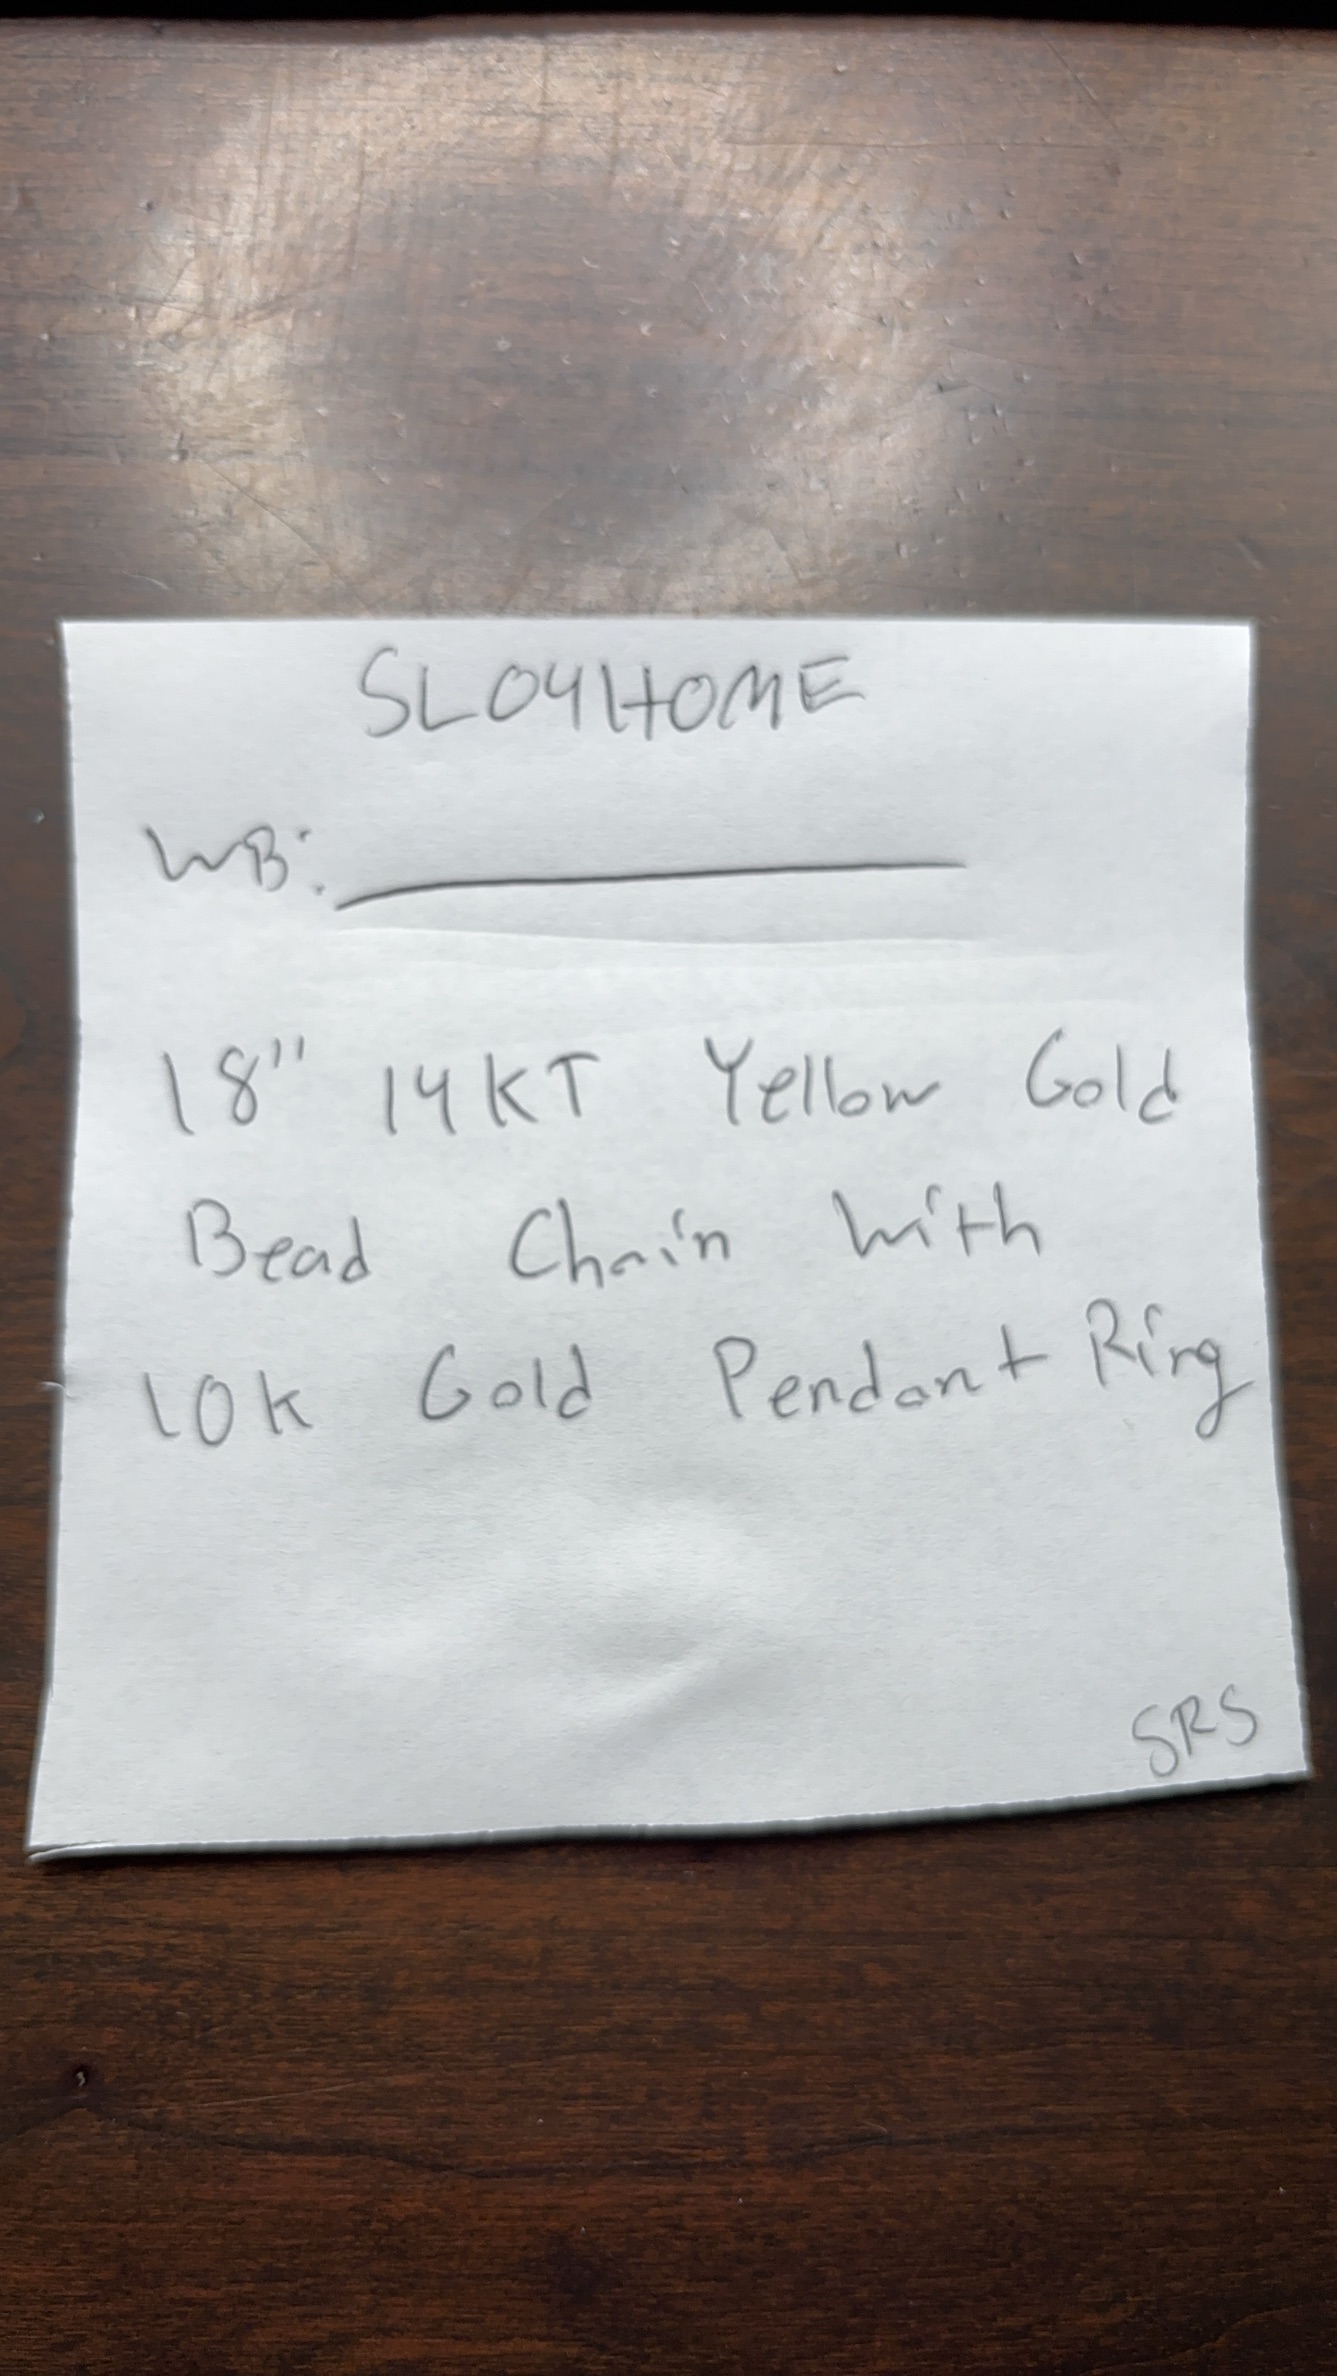 SL04HOME
WB: ________
18" 14KT Yellow Gold
Bead Chain with
10k Gold Pendant Ring
SRS